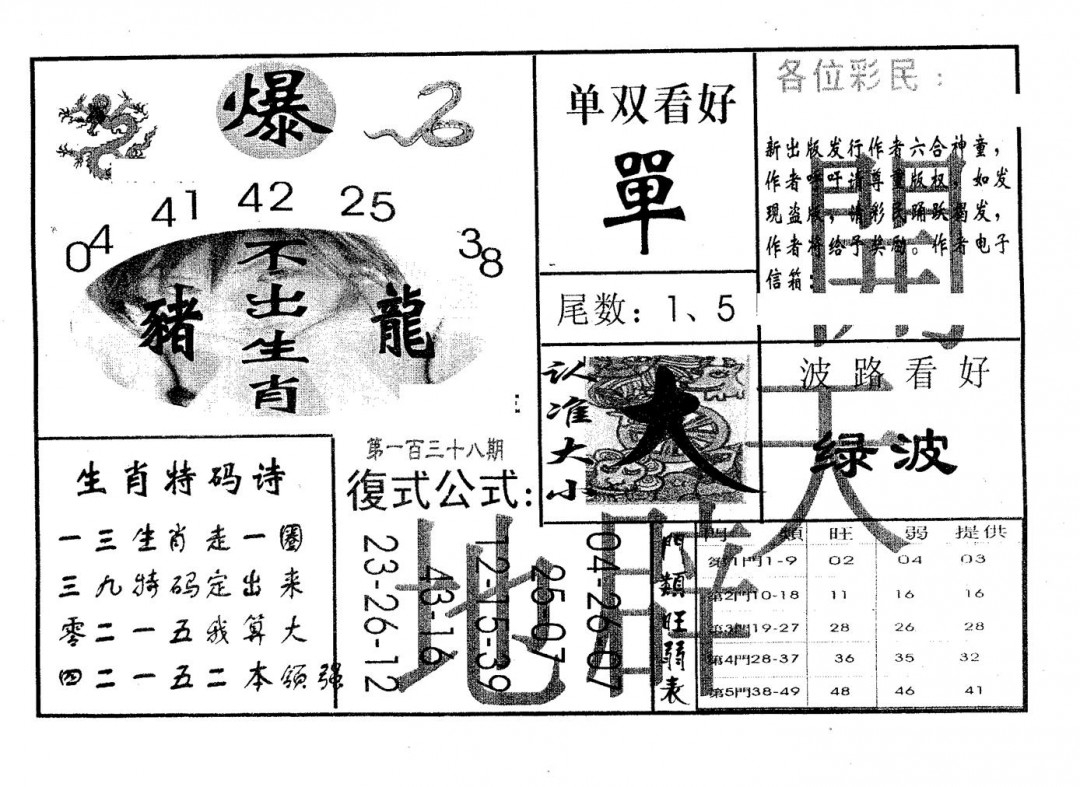 爆
04 41 42 25 38
不出生肖
豬
龍
单双看好
單
尾数：1、5
各位彩民：
新出版发行作者六合神童，
作者呼吁请尊重版权，如发
现盗版，请彩民踊跃揭发，
作者将给予奖励。作者电子
信箱：
认准大小
大
波路看好
绿波
生肖特码诗
一三生肖走一圈
三九特码定出来
零二一五我算大
四二一五二本领强
第一百三十八期
復式公式：
04-26-07
25-07
12-15-39
43-16
23-26-12
門類旺弱表
門類 旺 弱 提供
第1門1-9 02 04 03
第2門10-18 11 16 16
第3門19-27 28 26 28
第4門28-37 36 35 32
第5門38-49 48 46 41
天
地